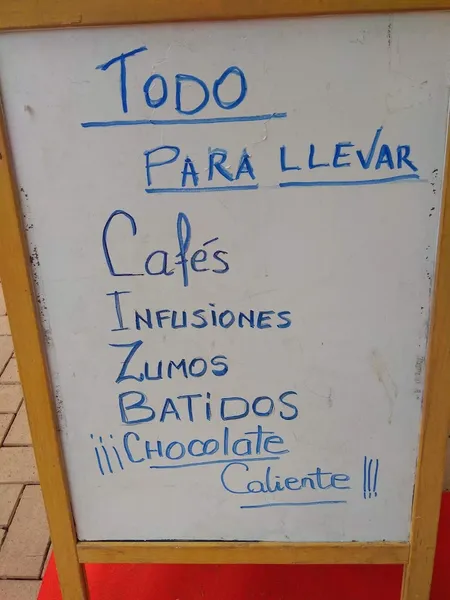 TODO
PARA LLEVAR
Cafés
INFUSIONES
ZUMOS
BATiDOS
¡¡¡CHOCOLATE
Caliente !!!